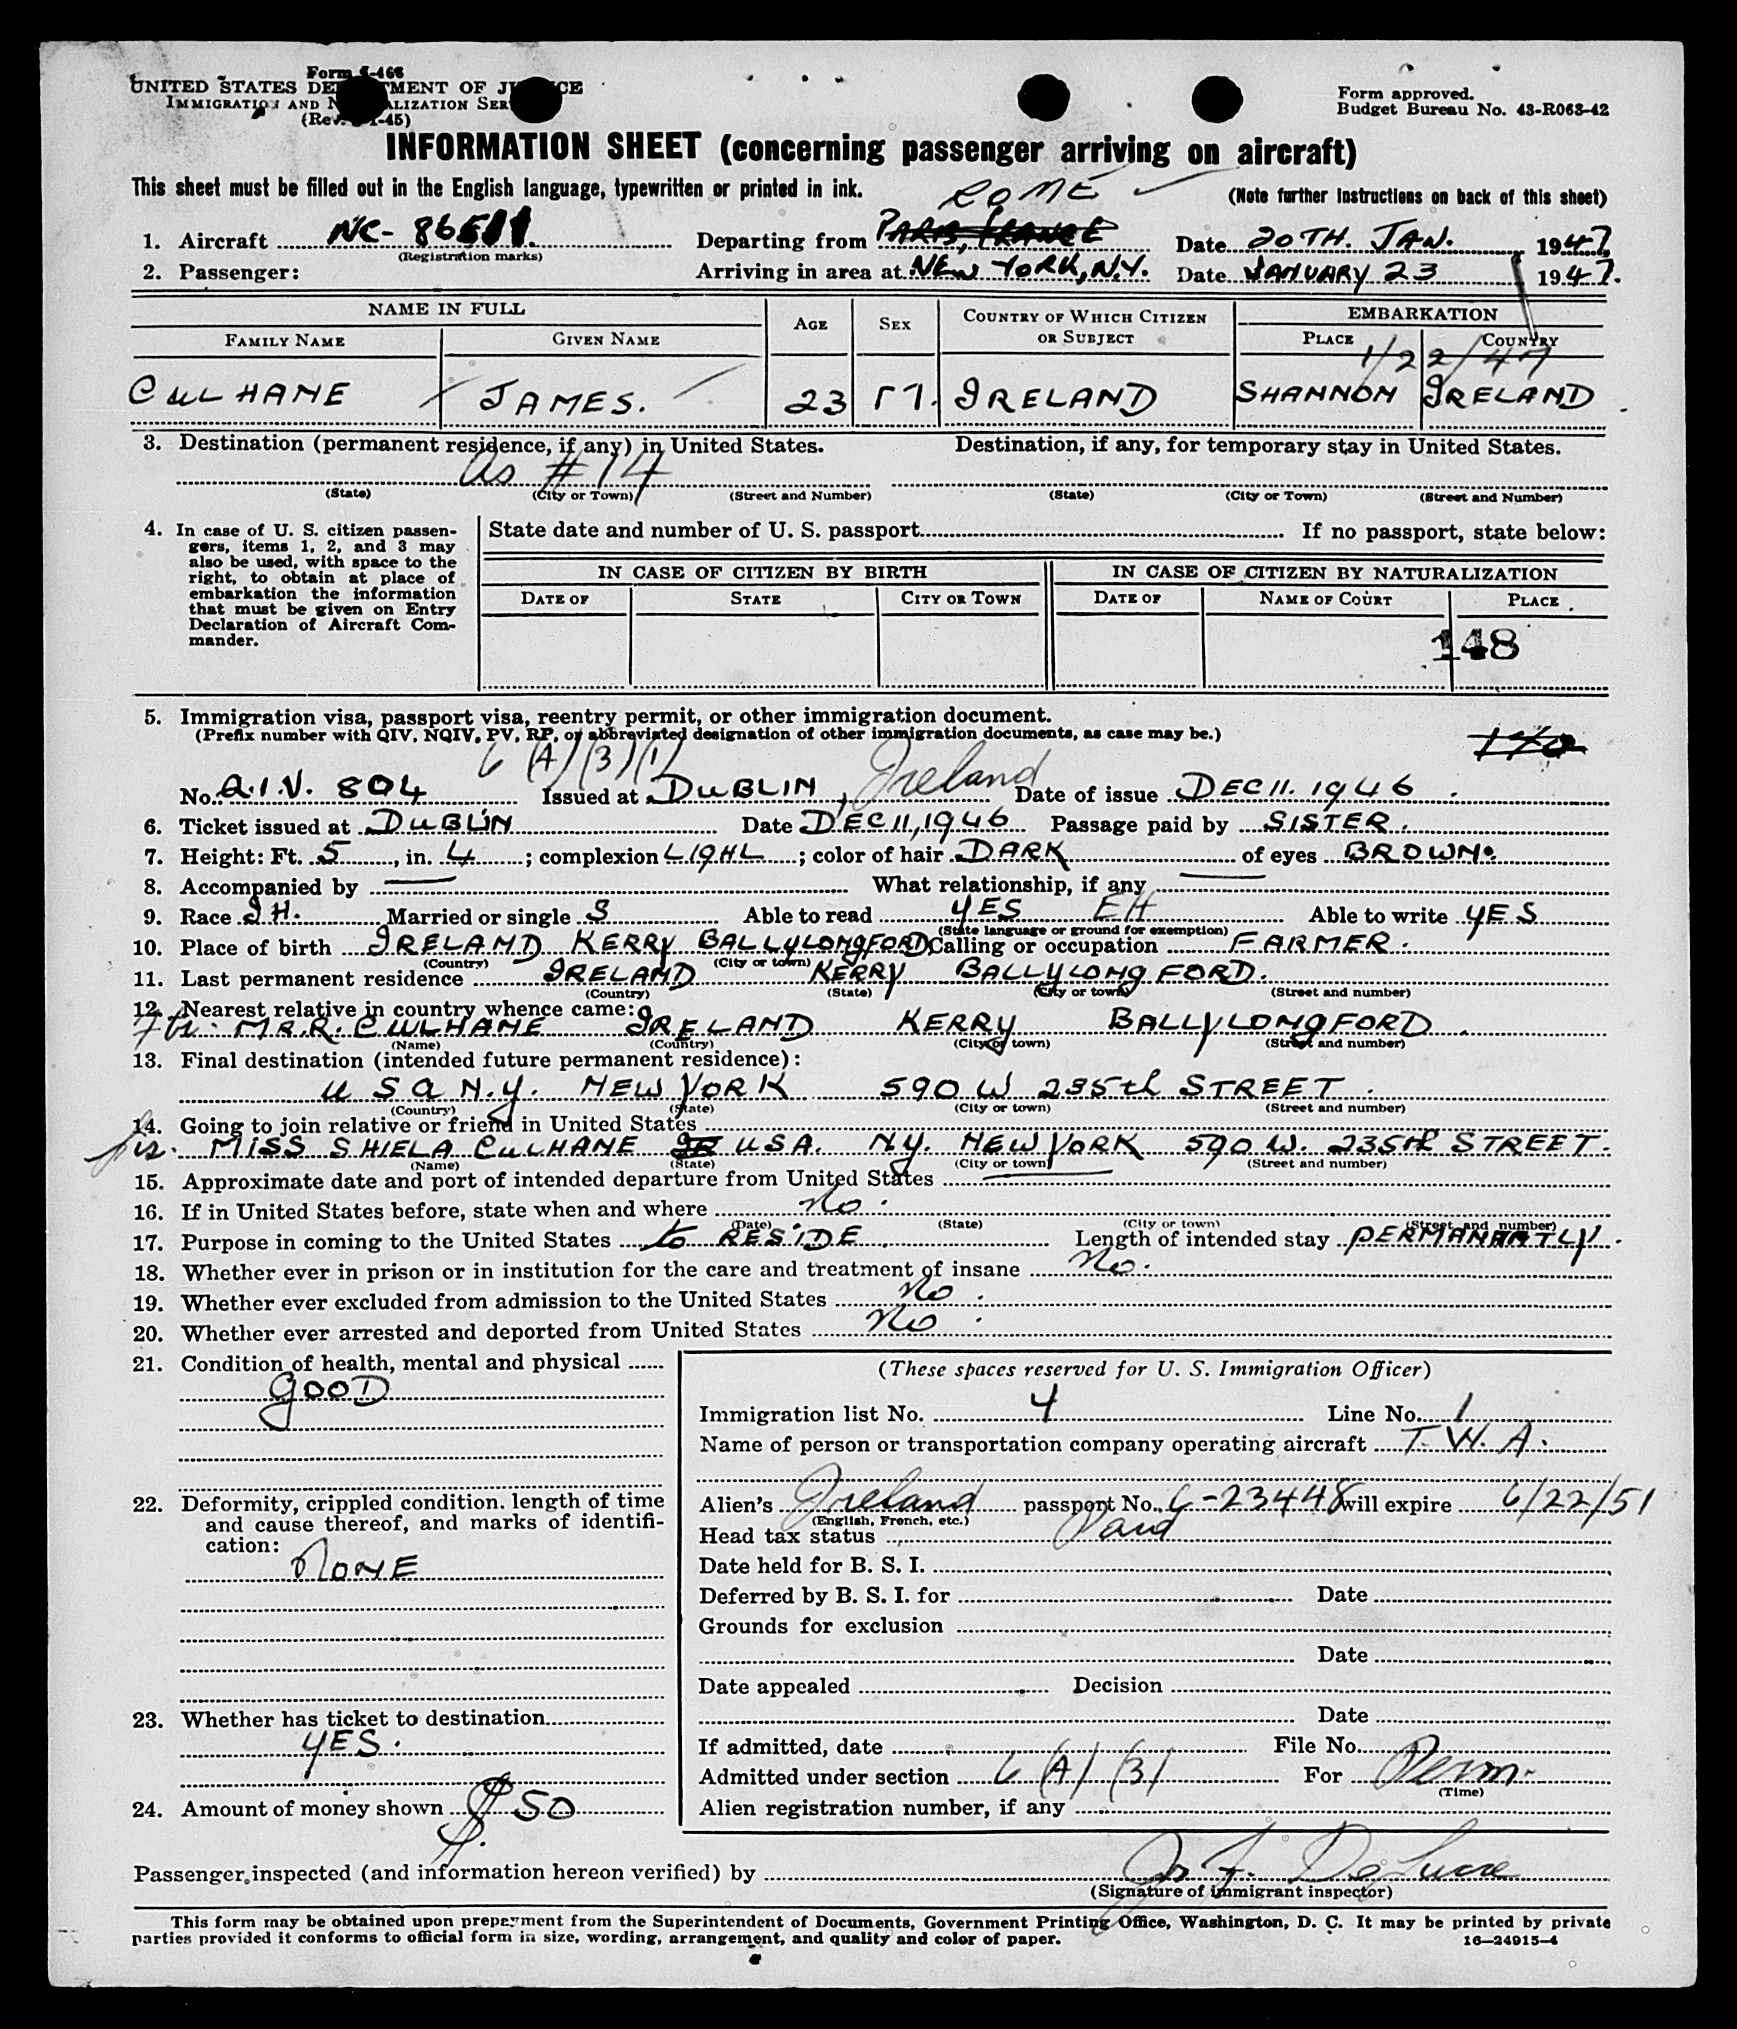 Form I-466
UNITED STATES DEPARTMENT OF JUSTICE
IMMIGRATION AND NATURALIZATION SERVICE
(Rev. 1-45)
Form approved.
Budget Bureau No. 43-R063-42
INFORMATION SHEET (concerning passenger arriving on aircraft)
This sheet must be filled out in the English language, typewritten or printed in ink.
(Note further instructions on back of this sheet)
ROME
1. Aircraft NC-86511 Departing from PARIS, FRANCE Date 20TH. JAN. 1947
(Registration marks)
2. Passenger: Arriving in area at NEW YORK, N.Y. Date JANUARY 23 1947.
NAME IN FULL AGE SEX COUNTRY OF WHICH CITIZEN OR SUBJECT EMBARKATION
FAMILY NAME GIVEN NAME PLACE COUNTRY
1/22/47
CULHANE JAMES. 23 M. IRELAND SHANNON IRELAND
3. Destination (permanent residence, if any) in United States. Destination, if any, for temporary stay in United States.
As #14
(State) (City or Town) (Street and Number) (State) (City or Town) (Street and Number)
4. In case of U. S. citizen passen-
gers, items 1, 2, and 3 may
also be used, with space to the
right, to obtain at place of
embarkation the information
that must be given on Entry
Declaration of Aircraft Com-
mander.
State date and number of U. S. passport If no passport, state below:
IN CASE OF CITIZEN BY BIRTH IN CASE OF CITIZEN BY NATURALIZATION
DATE OF STATE CITY OR TOWN DATE OF NAME OF COURT PLACE
148
5. Immigration visa, passport visa, reentry permit, or other immigration document.
(Prefix number with QIV, NQIV, PV, RP, or abbreviated designation of other immigration documents, as case may be.)
6 (A) (3) (1)
No. Q.I.V. 804 Issued at DUBLIN, Ireland Date of issue DEC 11. 1946.
6. Ticket issued at DUBLIN Date DEC 11, 1946 Passage paid by SISTER.
7. Height: Ft. 5, in. 4; complexion LIGHL; color of hair DARK of eyes BROWN.
8. Accompanied by — What relationship, if any —
9. Race IH. Married or single S Able to read YES EH Able to write YES
(State language or ground for exemption)
10. Place of birth IRELAND KERRY BALLYLONGFORD Calling or occupation FARMER.
(Country) (City or town)
11. Last permanent residence IRELAND KERRY BALLYLONGFORD.
(Country) (State) (City or town) (Street and number)
12. Nearest relative in country whence came:
Ftr. MR. R. CULHANE IRELAND KERRY BALLYLONGFORD.
(Name) (Country) (City or town) (Street and number)
13. Final destination (intended future permanent residence):
USA N.Y. NEW YORK 590 W 235th STREET.
(Country) (State) (City or town) (Street and number)
14. Going to join relative or friend in United States
sis. MISS SHIELA CULHANE USA. N.Y. NEW YORK 590 W. 235th STREET.
(Name) (State) (City or town) (Street and number)
15. Approximate date and port of intended departure from United States —
16. If in United States before, state when and where No.
(Date) (State) (City or town) (Street and number)
17. Purpose in coming to the United States to RESIDE Length of intended stay PERMANANTLY.
18. Whether ever in prison or in institution for the care and treatment of insane No.
19. Whether ever excluded from admission to the United States No.
20. Whether ever arrested and deported from United States No.
21. Condition of health, mental and physical
GOOD
22. Deformity, crippled condition. length of time
and cause thereof, and marks of identifi-
cation:
NONE
23. Whether has ticket to destination
YES.
24. Amount of money shown $50
(These spaces reserved for U. S. Immigration Officer)
Immigration list No. 4 Line No. 1
Name of person or transportation company operating aircraft T.W.A.
Alien's Ireland passport No. C-23448 will expire 6/22/51
(English, French, etc.)
Head tax status Paid
Date held for B. S. I.
Deferred by B. S. I. for Date
Grounds for exclusion
Date
Date appealed Decision
Date
If admitted, date File No.
Admitted under section 6 (A) (3) For Perm.
(Time)
Alien registration number, if any
Passenger inspected (and information hereon verified) by
(Signature of immigrant inspector)
This form may be obtained upon prepayment from the Superintendent of Documents, Government Printing Office, Washington, D. C. It may be printed by private
parties provided it conforms to official form in size, wording, arrangement, and quality and color of paper.
16—24915-4